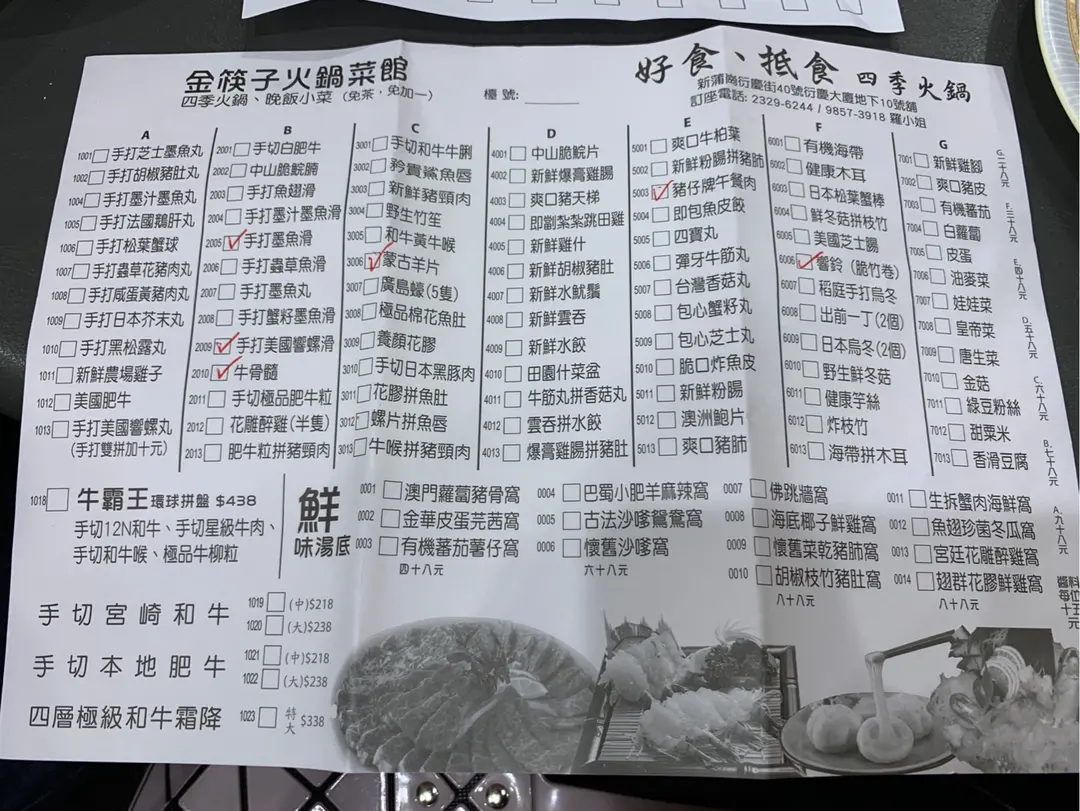 金筷子火鍋菜館
四季火鍋、晚飯小菜 (免茶,免加一)
檯號: ______
好食、抵食 四季火鍋
新蒲崗衍慶街40號衍慶大廈地下10號舖
訂座電話: 2329-6244 / 9857-3918 羅小姐
A
1001 手打芝士墨魚丸
1002 手打胡椒豬肚丸
1004 手打墨汁墨魚丸
1005 手打法國鵝肝丸
1006 手打松葉蟹球
1007 手打蟲草花豬肉丸
1008 手打咸蛋黃豬肉丸
1009 手打日本芥末丸
1010 手打黑松露丸
1011 新鮮農場雞子
1012 美國肥牛
1013 手打美國響螺丸
(手打雙拼加十元)
B
2001 手切白肥牛
2002 中山脆鯇腩
2003 手打魚翅滑
2004 手打墨汁墨魚滑
2005 手打墨魚滑
2006 手打蟲草魚滑
2007 手打墨魚丸
2008 手打蟹籽墨魚滑
2009 手打美國響螺滑
2010 牛骨髓
2011 手切極品肥牛粒
2012 花雕醉雞(半隻)
2013 肥牛粒拼豬頸肉
C
3001 手切和牛牛脷
3002 矜貴鯊魚唇
3003 新鮮豬頸肉
3004 野生竹笙
3005 和牛黃牛喉
3006 蒙古羊片
3007 廣島蠔(5隻)
3008 極品棉花魚肚
3009 養顏花膠
3010 手切日本黑豚肉
3011 花膠拼魚肚
3012 螺片拼魚唇
3013 牛喉拼豬頸肉
D
4001 中山脆鯇片
4002 新鮮爆膏雞腸
4003 爽口豬天梯
4004 即劏紮紮跳田雞
4005 新鮮雞什
4006 新鮮胡椒豬肚
4007 新鮮水魷鬚
4008 新鮮雲吞
4009 新鮮水餃
4010 田園什菜盆
4011 牛筋丸拼香菇丸
4012 雲吞拼水餃
4013 爆膏雞腸拼豬肚
E
5001 爽口牛柏葉
5002 新鮮粉腸拼豬肺
5003 豬仔牌午餐肉
5004 即包魚皮餃
5005 四寶丸
5006 彈牙牛筋丸
5007 台灣香菇丸
5008 包心蟹籽丸
5009 包心芝士丸
5010 脆口炸魚皮
5011 新鮮粉腸
5012 澳洲鮑片
5013 爽口豬肺
F
6001 有機海帶
6002 健康木耳
6003 日本松葉蟹棒
6004 鮮冬菇拼枝竹
6005 美國芝士腸
6006 響鈴 (脆竹卷)
6007 稻庭手打烏冬
6008 出前一丁(2個)
6009 日本烏冬(2個)
6010 野生鮮冬菇
6011 健康芋絲
6012 炸枝竹
6013 海帶拼木耳
G
7001 新鮮雞腳
7002 爽口豬皮
7003 有機蕃茄
7004 白蘿蔔
7005 皮蛋
7006 油麥菜
7007 娃娃菜
7008 皇帝菜
7009 唐生菜
7010 金菇
7011 綠豆粉絲
7012 甜粟米
7013 香滑豆腐
G.二十八元
F.三十八元
E.四十八元
D.五十八元
C.六十八元
B.七十八元
A.九十八元
醬料每位十五元
1018 牛霸王 環球拼盤 $438
手切12N和牛、手切星級牛肉、
手切和牛喉、極品牛柳粒
鮮
味湯底
0001 澳門蘿蔔豬骨窩
0002 金華皮蛋芫茜窩
0003 有機蕃茄薯仔窩
四十八元
0004 巴蜀小肥羊麻辣窩
0005 古法沙嗲鴛鴦窩
0006 懷舊沙嗲窩
六十八元
0007 佛跳牆窩
0008 海底椰子鮮雞窩
0009 懷舊菜乾豬肺窩
0010 胡椒枝竹豬肚窩
八十八元
0011 生拆蟹肉海鮮窩
0012 魚翅珍菌冬瓜窩
0013 宮廷花雕醉雞窩
0014 翅群花膠鮮雞窩
八十八元
手切宮崎和牛
1019 (中)$218
1020 (大)$238
手切本地肥牛
1021 (中)$218
1022 (大)$238
四層極級和牛霜降
1023 特大 $338